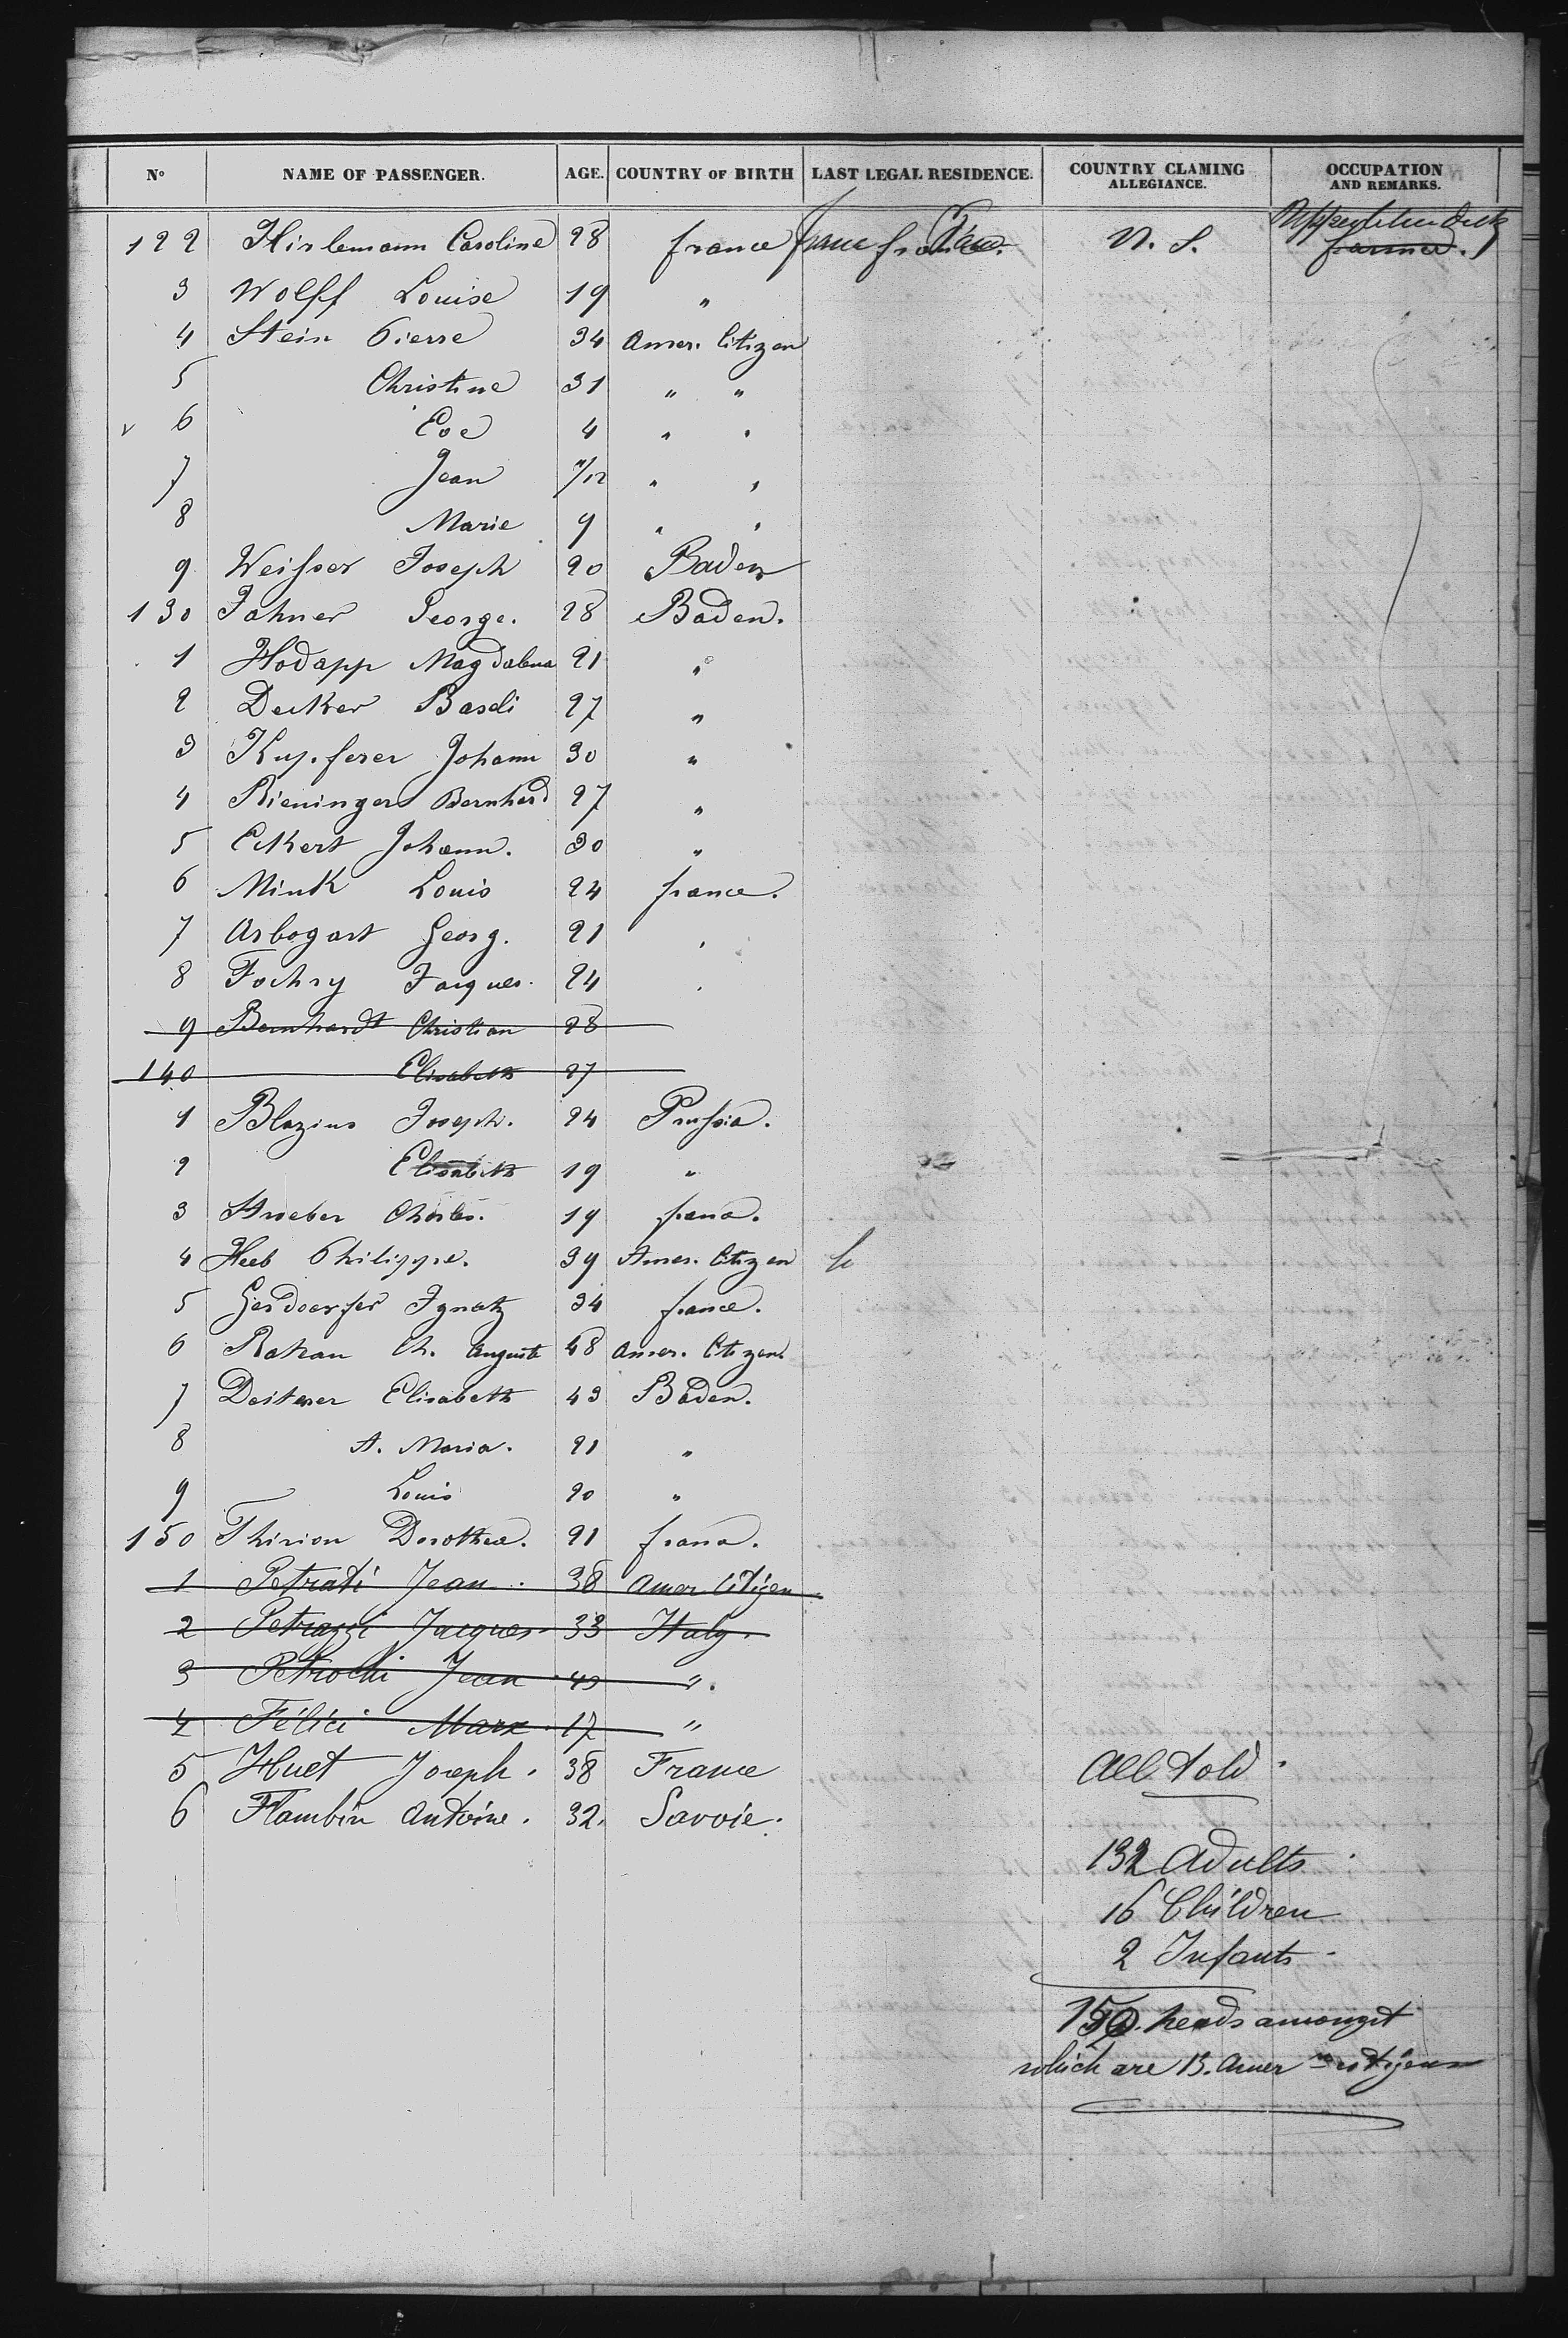 No NAME OF PASSENGER. AGE. COUNTRY OF BIRTH LAST LEGAL RESIDENCE. COUNTRY CLAMING ALLEGIANCE. OCCUPATION AND REMARKS.
122 Hirlemann Caroline 28 france france france U. S. farmer.
3 Wolff Louise 19 "
4 Stein Pierre 34 Amer. Citizen
5 Christine 31 " "
6 Eve 4 " "
7 Jean 11/12 " "
8 Marie 9 " "
9 Weisser Joseph 20 Baden
130 Jahner George. 28 Baden.
1 Hodapp Magdalena 21 "
2 Decker Baseli 27 "
3 Kupferer Johann 30 "
4 Rieninger Bernhard 27 "
5 Eckert Johann. 30 "
6 Mink Louis 24 france.
7 Arbogast Georg. 21 "
8 Fochry Jacques. 24 "
9 Bernhardt Christian 28
140 Elisabeth 27
1 Blazius Joseph. 24 Prussia.
2 Elisabeth 19 "
3 Stroeber Charles. 19 france.
4 Heeb Philippe. 39 Amer. Citizen
5 Gerdoerfer Ignatz 34 france.
6 Rohan Ch. Auguste 48 Amer. Citizen.
7 Deiterer Elisabeth 43 Baden.
8 A. Maria. 21 "
9 Louis 20 "
150 Thirion Dorothea. 21 france.
1 Petrati Jean. 38 Amer Citizen
2 Petrazzi Jacques 33 Italy.
3 Petrochi Jean 43 ".
4 Félici Marx 17 "
5 Huet Joseph. 38 France All told.
6 Flambin Antoine. 32. Savoie.
132 Adults
16 Children
2 Infants
150. heads amongst
which are 13. Amer citizens